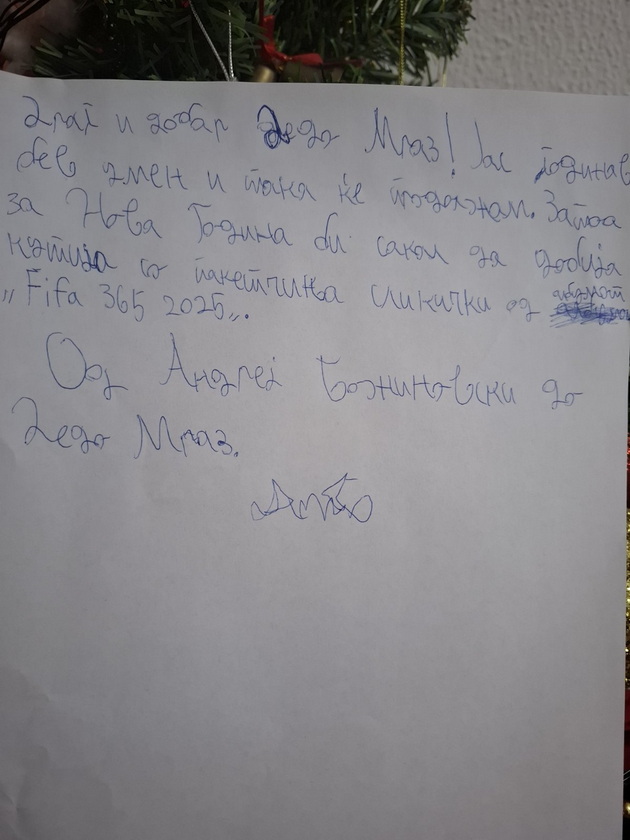 Драг и добар Дедо Мраз! Јас годинав
бев умен и така ќе продолжам. Затоа
за Нова Година би сакал да добија
кутија со пакетчиња сликички од албумот
„Fifa 365 2025„.
Од Андреј Божиновски до
Дедо Мраз.